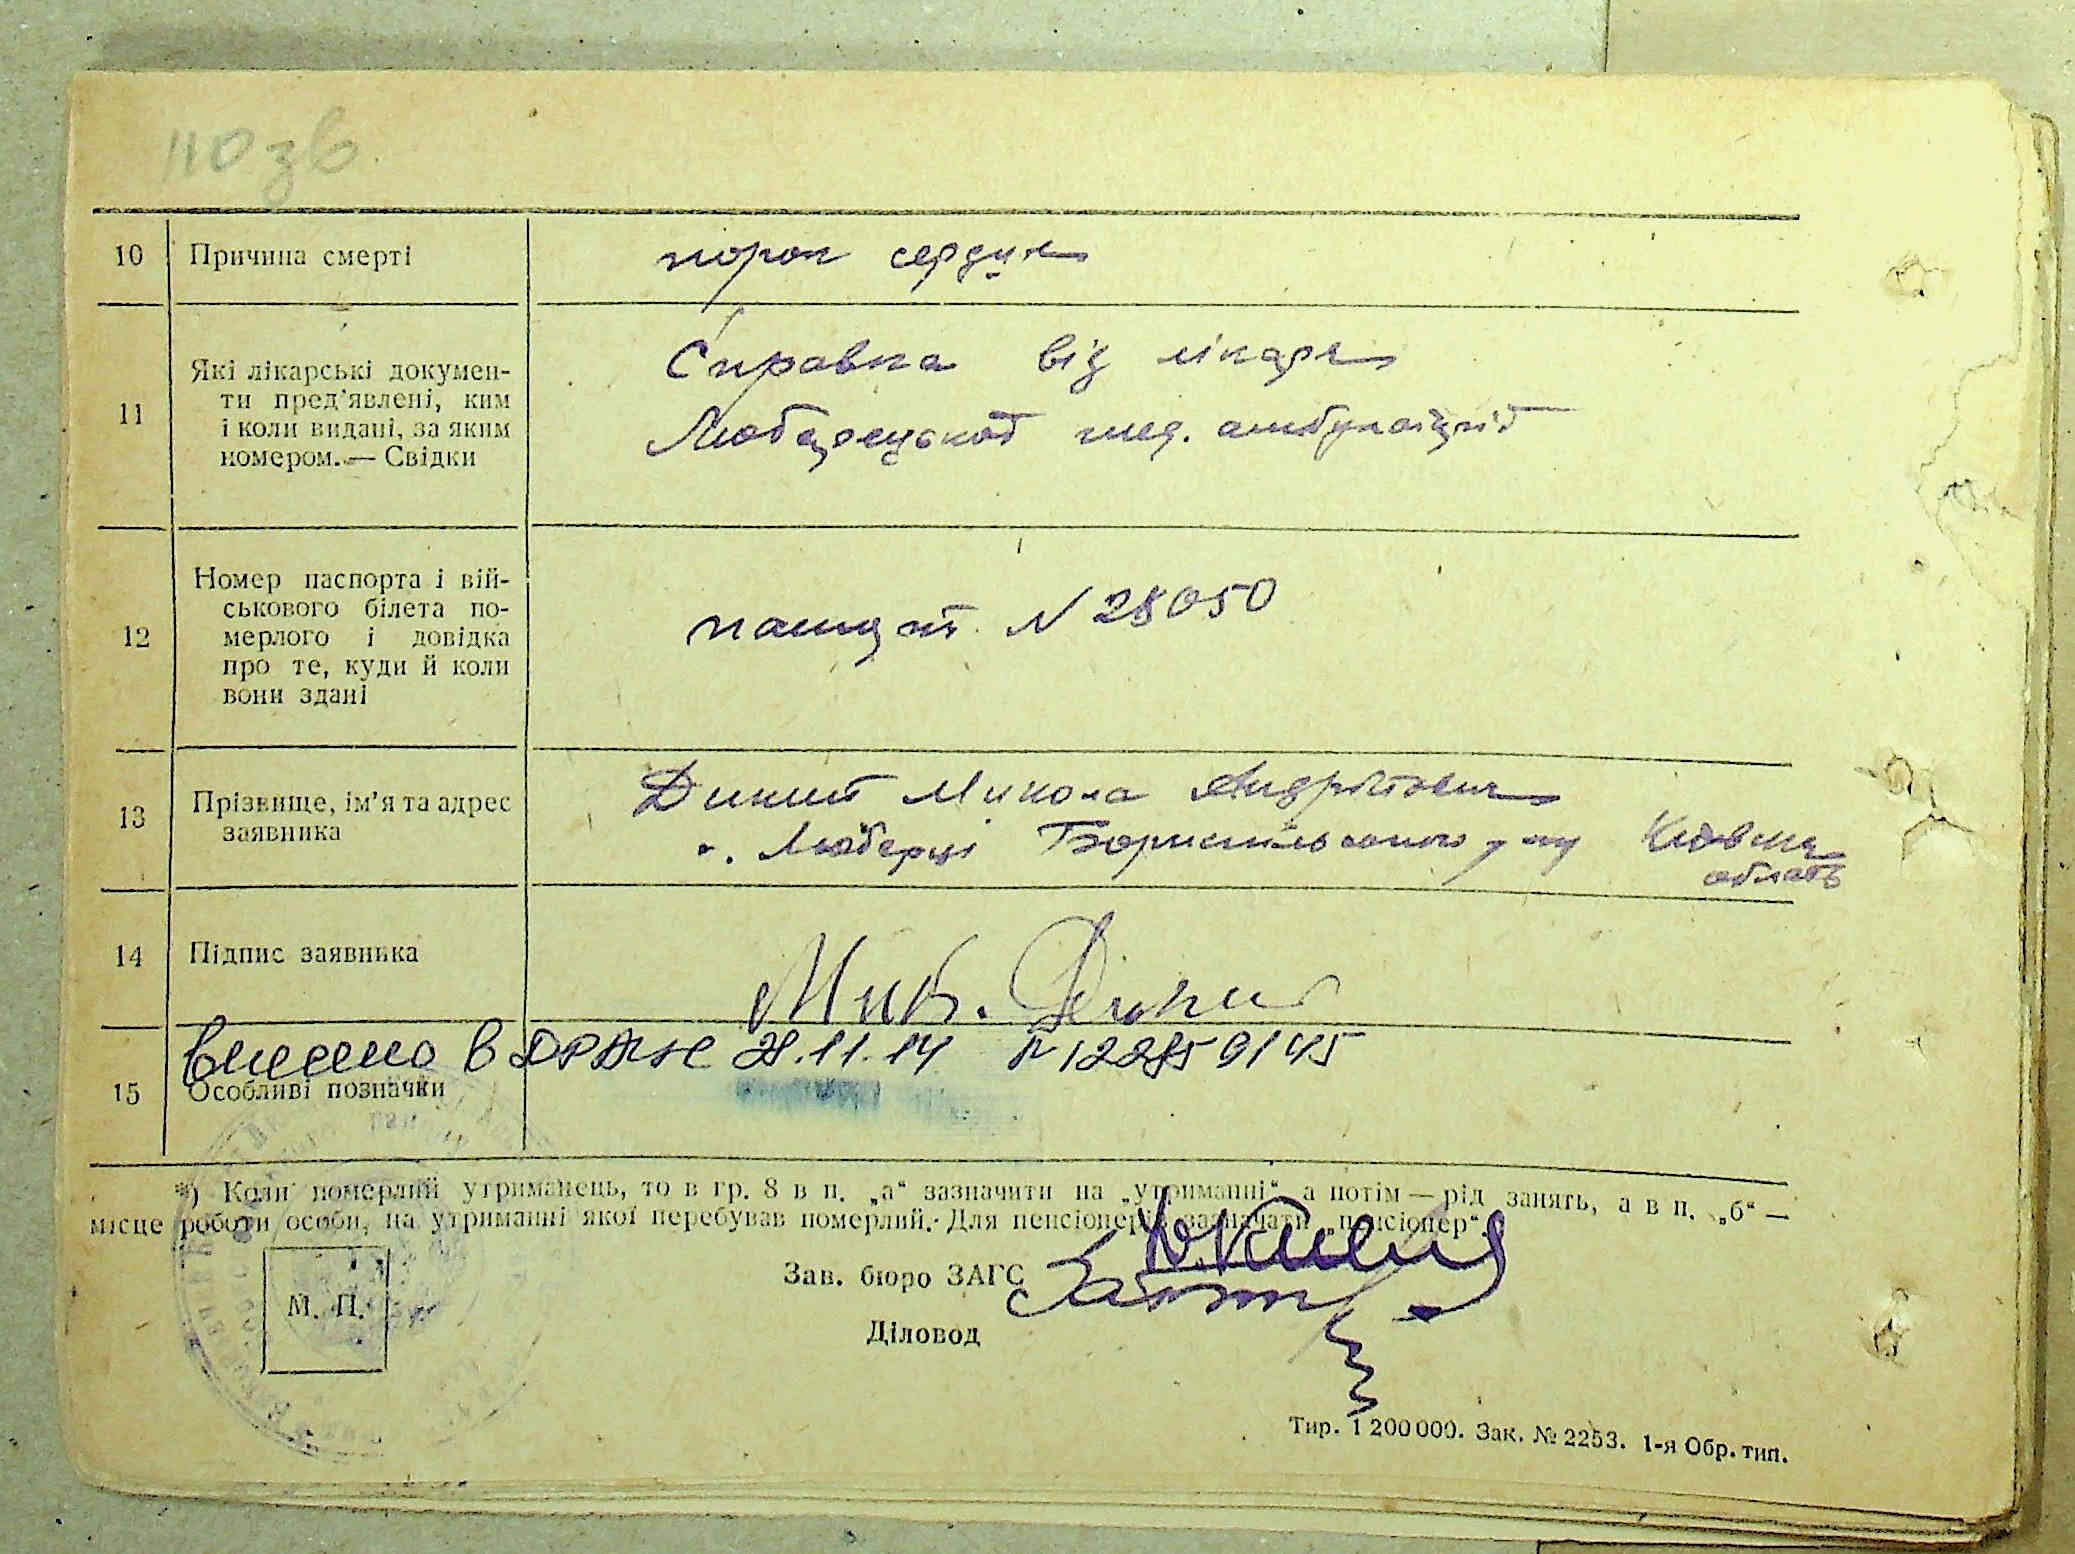 110 зв
10 Причина смерті порок сердця
11 Які лікарські докумен-
ти пред'явлені, ким
і коли видані, за яким
номером. — Свідки
Справка від лікаря
Любарецької мед. амбулаторії
12 Номер паспорта і вій-
ськового білета по-
мерлого і довідка
про те, куди й коли
вони здані
пашпорт N 28050
13 Прізвище, ім'я та адрес
заявника
Дикий Микола Андрійович
с. Любарці Бориспільського р-ну Київська
область
14 Підпис заявника Мик. Дикий
внесено в ДРАЦС 28.11.14 №
15 Особливі позначки
*) Коли померлий утриманець, то в гр. 8 в п. „а“ зазначити на „утриманні“ а потім — рід занять, а в п. „б“ —
місце роботи особи, на утриманні якої перебував померлий. Для пенсіонерів зазначати „пенсіонер“.
Зав. бюро ЗАГС
М. П.
Діловод
Тир. 1 200 000. Зак. № 2253. 1-я Обр. тип.